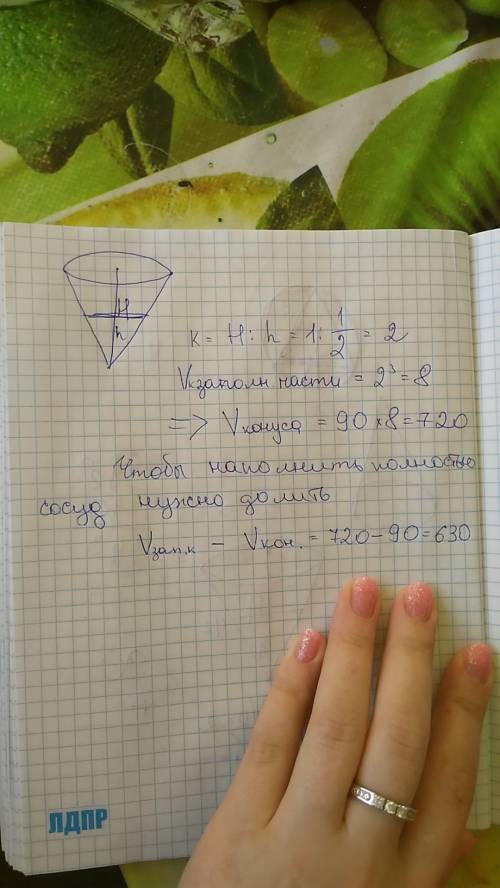 H
h
k = H : h = 1 : 1/2 = 2
Vк заполн части = 2³ = 8
=> Vконуса = 90 × 8 = 720
Чтобы наполнить полностью
сосуд нужно долить
Vзап.к – Vкон. = 720 – 90 = 630
ЛДПР